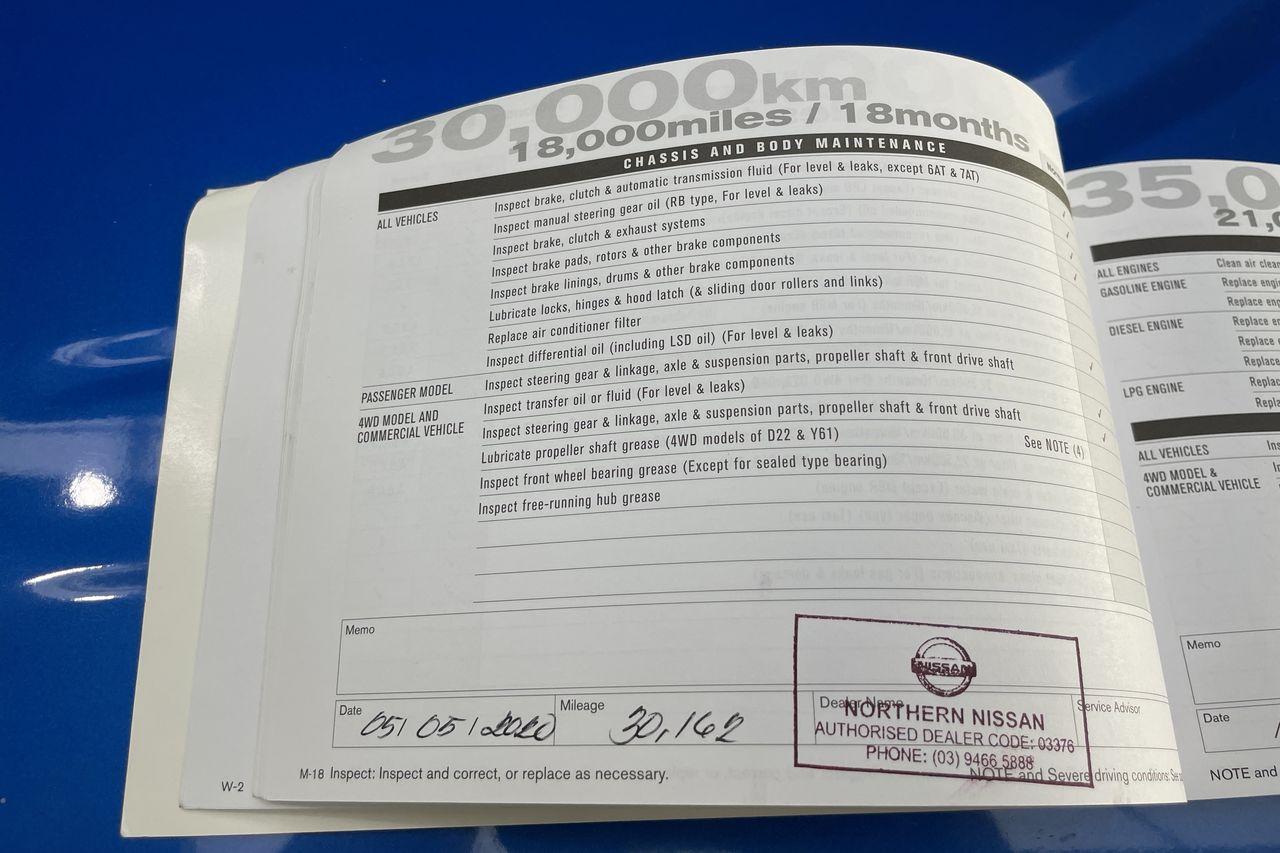 30,000km
18,000miles / 18months
CHASSIS AND BODY MAINTENANCE
ALL VEHICLES
Inspect brake, clutch & automatic transmission fluid (For level & leaks, except 6AT & 7AT)
Inspect manual steering gear oil (RB type, For level & leaks)
Inspect brake, clutch & exhaust systems
Inspect brake pads, rotors & other brake components
Inspect brake linings, drums & other brake components
Lubricate locks, hinges & hood latch (& sliding door rollers and links)
Replace air conditioner filter
Inspect differential oil (including LSD oil) (For level & leaks)
PASSENGER MODEL
Inspect steering gear & linkage, axle & suspension parts, propeller shaft & front drive shaft
4WD MODEL AND
COMMERCIAL VEHICLE
Inspect transfer oil or fluid (For level & leaks)
Inspect steering gear & linkage, axle & suspension parts, propeller shaft & front drive shaft
Lubricate propeller shaft grease (4WD models of D22 & Y61) See NOTE (4)
Inspect front wheel bearing grease (Except for sealed type bearing)
Inspect free-running hub grease
Memo
Date 05/05/2020
Mileage 30,162
Dealer Name
Service Advisor
NISSAN
NORTHERN NISSAN
AUTHORISED DEALER CODE: 03376
PHONE: (03) 9466 5888
M-18 Inspect: Inspect and correct, or replace as necessary.
NOTE and Severe driving conditions: See
W-2
35,0
21,0
ALL ENGINES
Clean air clean
GASOLINE ENGINE
Replace engi
Replace eng
DIESEL ENGINE
Replace en
Replace e
Replace
LPG ENGINE
Replac
Repla
ALL VEHICLES
Ins
4WD MODEL &
COMMERCIAL VEHICLE
Memo
Date
NOTE and